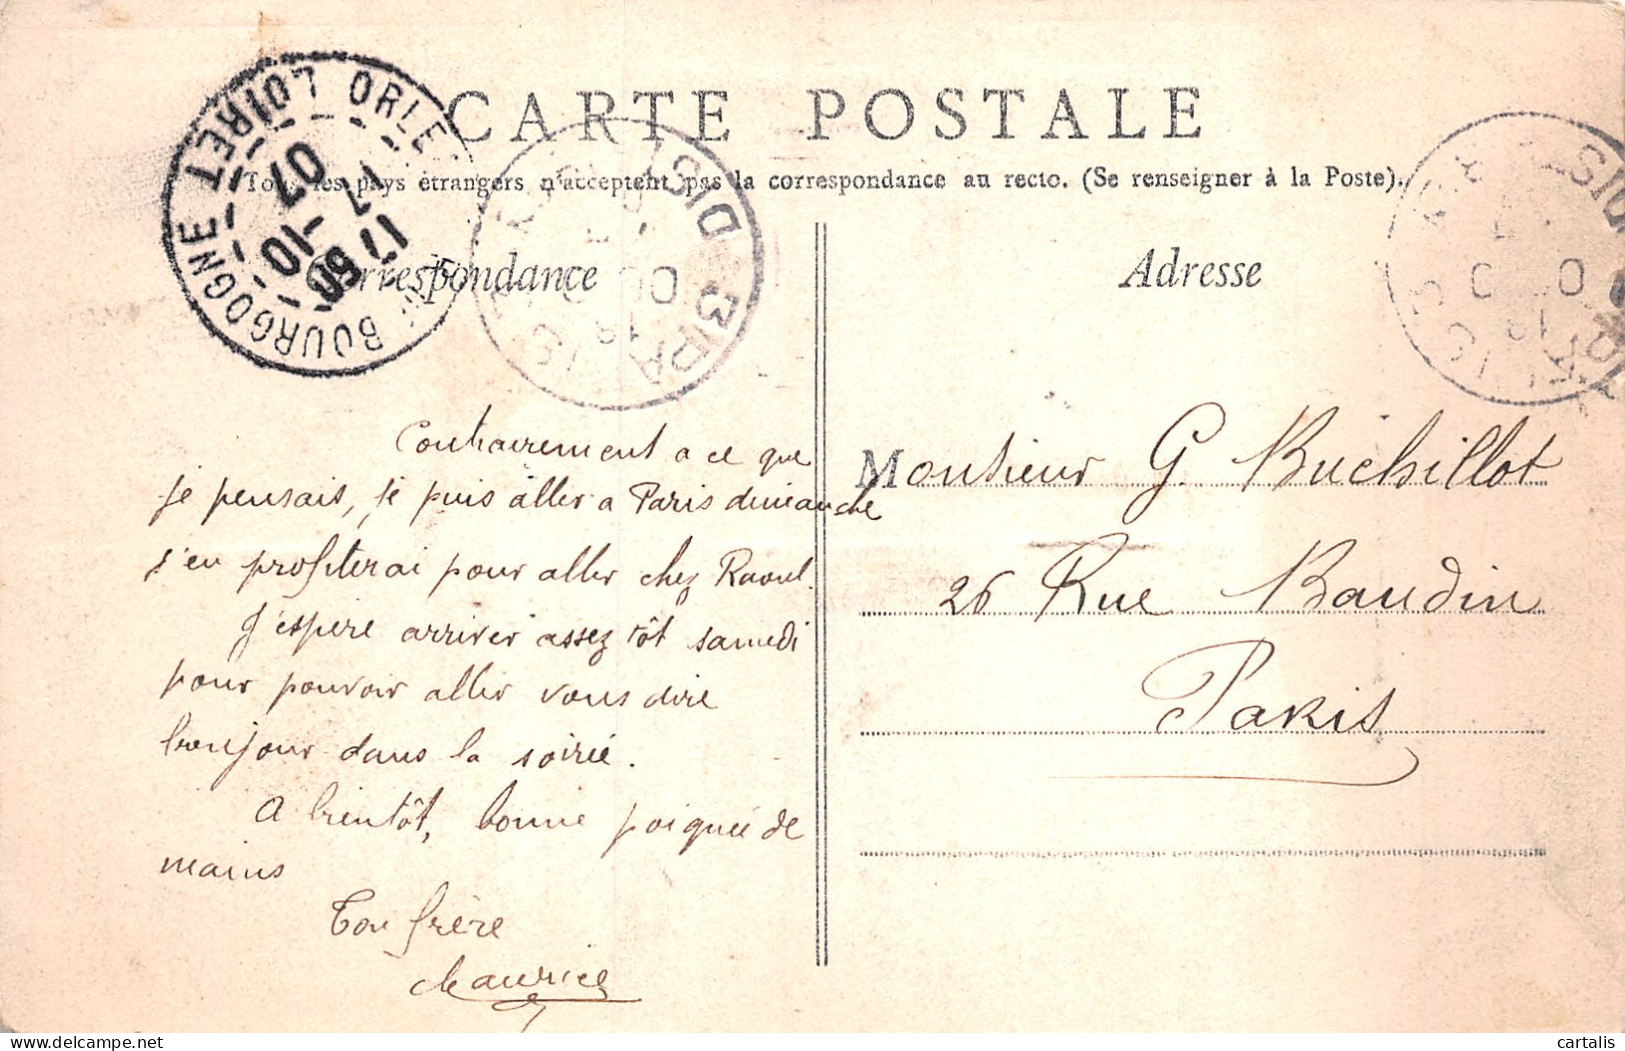 CARTE POSTALE
Tous les pays étrangers n'acceptent pas la correspondance au recto. (Se renseigner à la Poste).
Correspondance
Adresse
ORLE
BOURGOGNE LOIRET
17 50
17 -10
07
DIST
PARIS
Contrairement a ce que
je pensais, je puis aller a Paris dimanche
j'en profiterai pour aller chez Raoul.
J'espere arriver assez tôt samedi
pour pouvoir aller vous dire
bonjour dans la soirée.
A bientôt, bonne poignée de
mains
Ton frère
Maurice
Monsieur G. Buchillot
26 Rue Baudin
Paris
cartalis